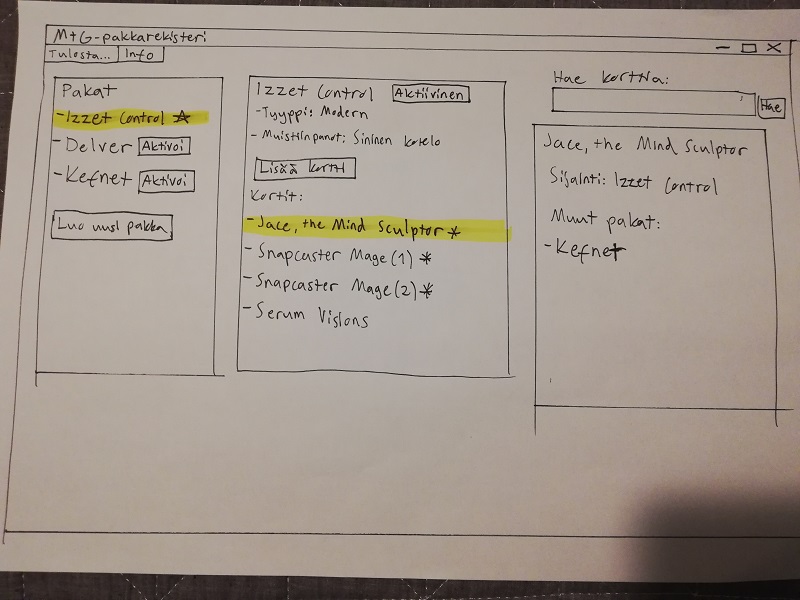 MtG-pakkarekisteri
Tulosta... Info
Pakat
-Izzet Control ☆
-Delver Aktivoi
-Kefnet Aktivoi
Luo uusi pakka
Izzet Control Aktiivinen
-Tyyppi: Modern
-Muistiinpanot: Sininen kotelo
Lisää kortti
Kortit:
-Jace, the Mind Sculptor *
-Snapcaster Mage (1) *
-Snapcaster Mage (2) *
-Serum Visions
Hae korttia:
Hae
Jace, the Mind Sculptor
Sijainti: Izzet Control
Muut pakat:
-Kefnet